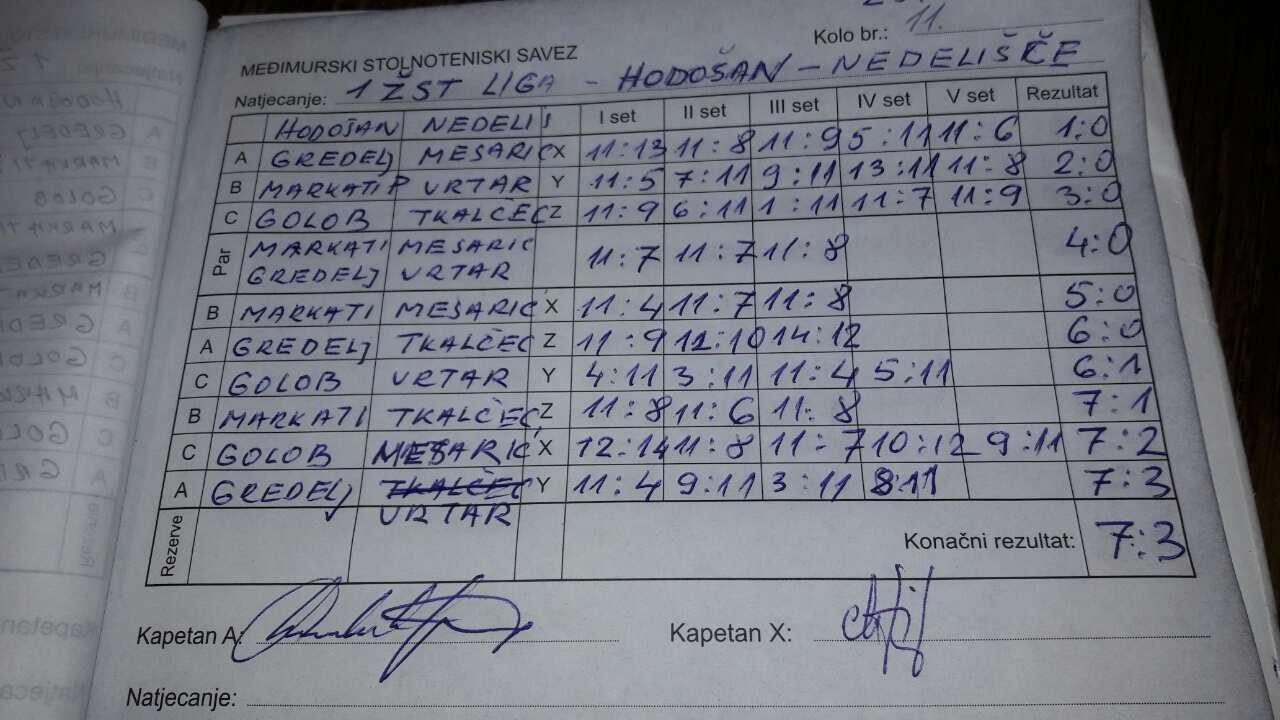 Kolo br.: 11.
MEĐIMURSKI STOLNOTENISKI SAVEZ
Natjecanje: 1 ŽST LIGA - HODOŠAN - NEDELIŠĆE
HODOŠAN NEDELIŠ I set II set III set IV set V set Rezultat
A GREDELJ MESARIĆ X 11:13 11:8 11:9 5:11 11:6 1:0
B MARKATI P VRTAR Y 11:5 7:11 9:11 13:11 11:8 2:0
C GOLOB TKALČEC Z 11:9 6:11 1:11 11:7 11:9 3:0
Par MARKATI MESARIĆ 11:7 11:7 11:8 4:0
GREDELJ VRTAR
B MARKATI MESARIĆ X 11:4 11:7 11:8 5:0
A GREDELJ TKALČEC Z 11:9 12:10 14:12 6:0
C GOLOB VRTAR Y 4:11 3:11 11:4 5:11 6:1
B MARKATI TKALČEC Z 11:8 11:6 11:8 7:1
C GOLOB MESARIĆ X 12:14 11:8 11:7 10:12 9:11 7:2
A GREDELJ TKALČEC Y 11:4 9:11 3:11 8:11 7:3
VRTAR
Rezerve Konačni rezultat: 7:3
Kapetan A: Kapetan X:
Natjecanje: